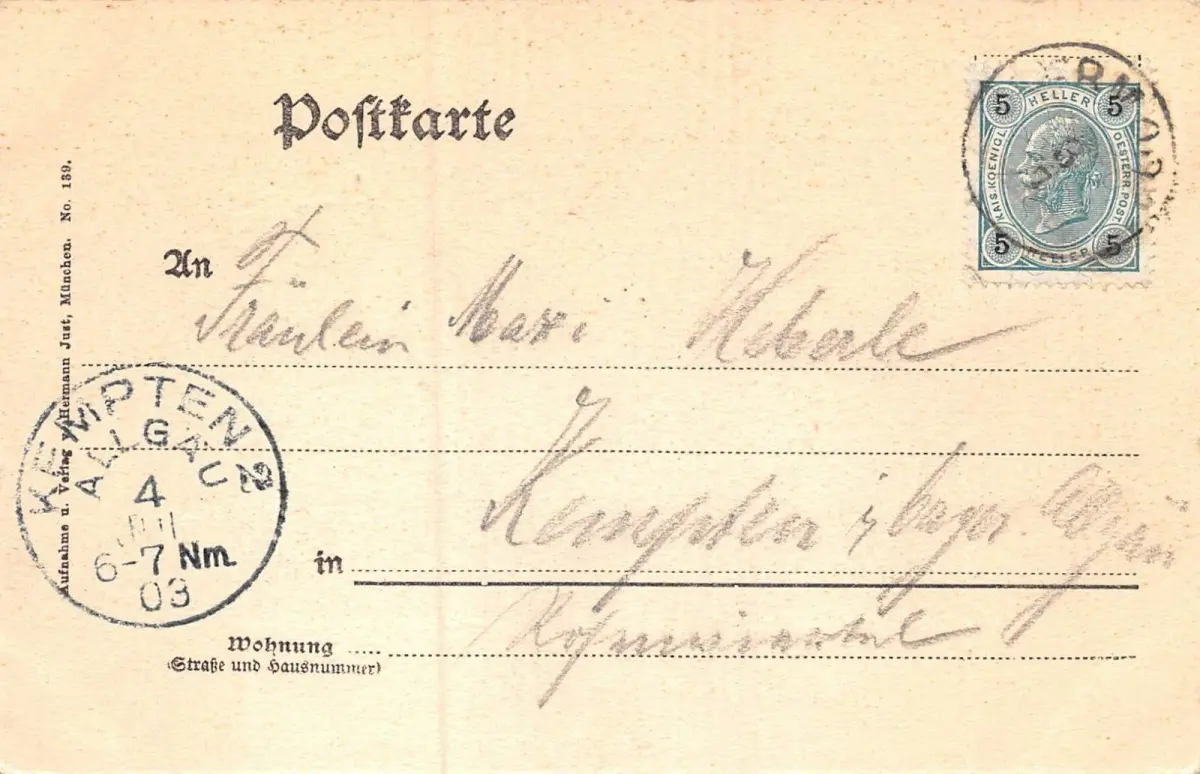 Postkarte
5 HELLER 5
KAIS. KOENIGL. OESTERR. POST.
5 HELLER 5
An Fräulein Maxi Heberle
KEMPTEN 2
ALLGÄU
4
JUL
6-7 Nm.
03
in Kempten i/ bayr. Allgäu
Wohnung
(Straße und Hausnummer)
Aufnahme u. Verlag v. Hermann Just, München. No. 139.